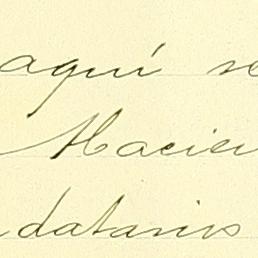 aquí se
Hacien
datarios